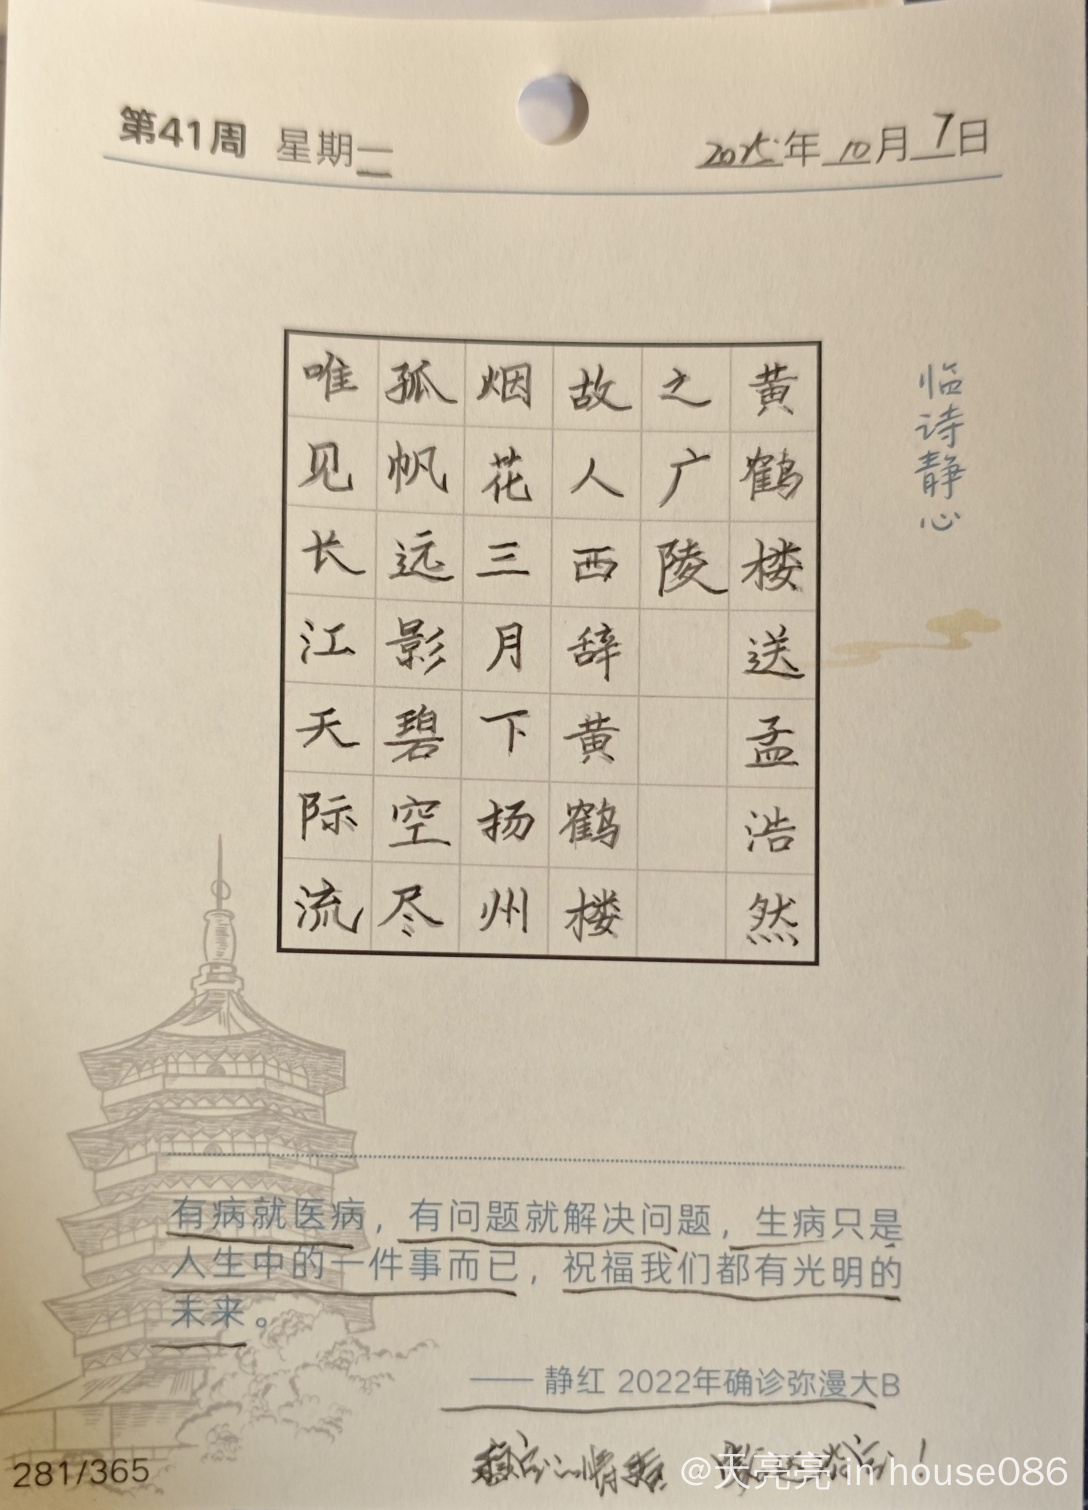 第41周 星期二 2025年10月7日
临诗静心
黄鹤楼送孟浩然
之广陵
故人西辞黄鹤楼
烟花三月下扬州
孤帆远影碧空尽
唯见长江天际流
有病就医病，有问题就解决问题，生病只是
人生中的一件事而已，祝福我们都有光明的
未来。
—— 静红 2022年确诊弥漫大B
281/365
@天亮亮 in house086